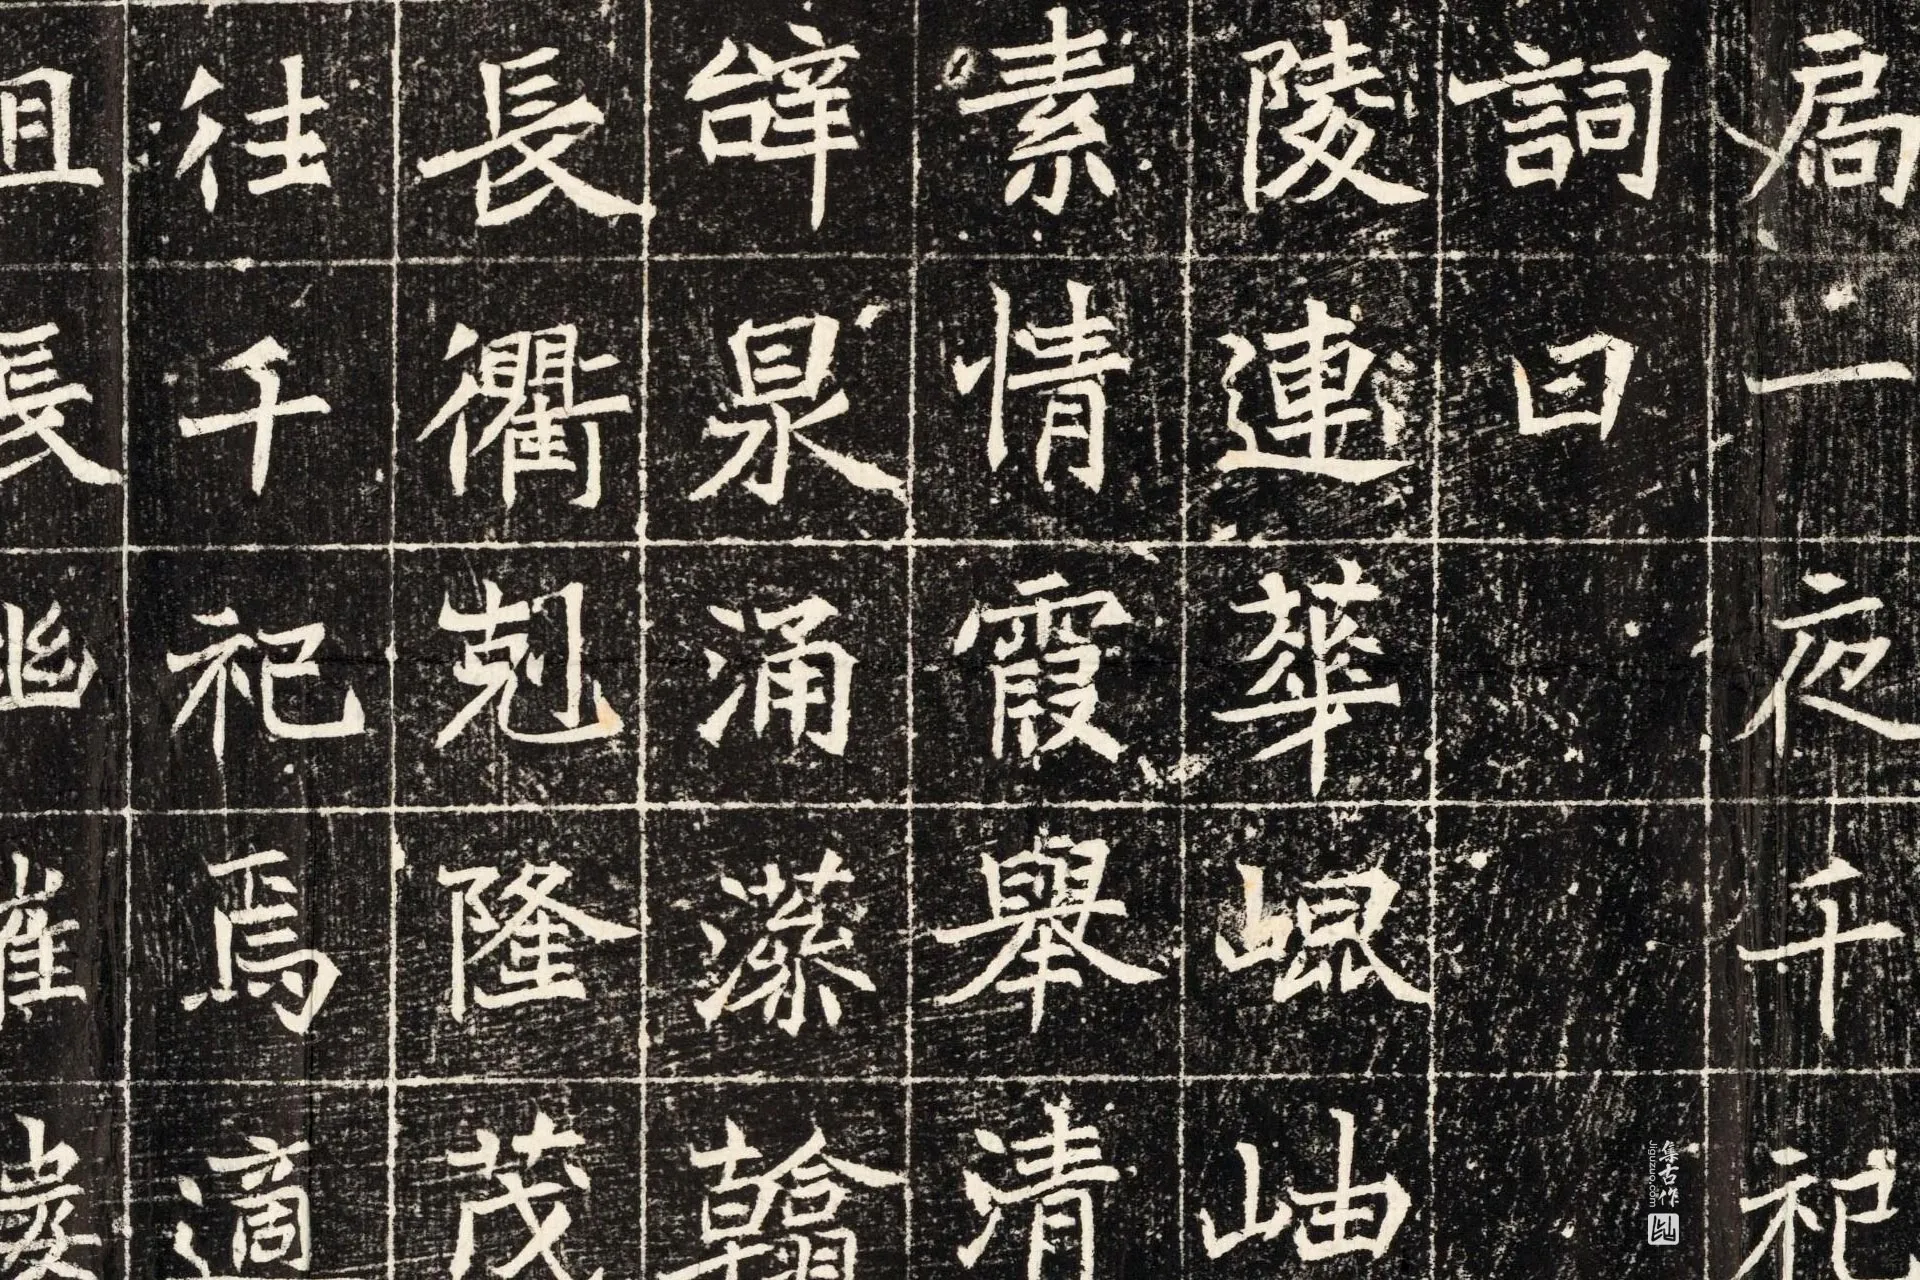 局一夜千祀
詞曰
陵連華崐岫
素情霞舉清
辝泉涌藻翰
長衢剋隆茂
往千祀焉適
且長幽崔
集古作
jiguzuo.com